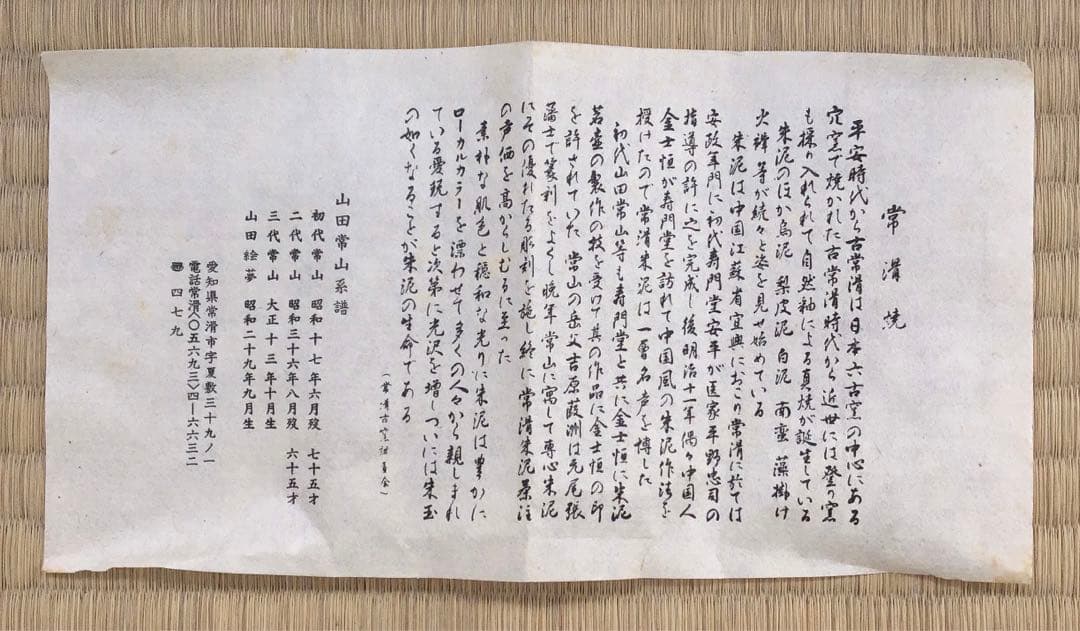 常滑焼
平安時代から古常滑は日本六古窯の中心にある
穴窯で焼かれた古常滑時代から近世には登り窯
も採り入れられて自然釉による真焼が誕生している
朱泥のほか烏泥 梨皮泥 白泥 南蛮 藻掛け
火襷等が続々と姿を見せ始めている
朱泥は中国江蘇省宜興におこり常滑に於ては
安政年間に初代寿門堂安平が医家平野忠司の
指導の許に之を完成し後明治十一年偶々中国人
金士恒が寿門堂を訪れて中国風の朱泥作法を
授けたので常滑朱泥は一層名声を博した
初代山田常山等も寿門堂と共に金士恒に朱泥
茗壷の製作の技を受けて其の作品に金士恒の印
を許されていた 常山の岳父吉原葭洲は元尾張
藩士で篆刻をよくし晩年常山に寓して専心朱泥
にその優れたる彫刻を施し終に常滑朱泥茶注
の声価を高からしむるに至った
素朴な肌色と穏和な光りに朱泥は豊かに
ローカルカラーを漂わせて多くの人々から親しまれ
ている愛玩すると次第に光沢を増しついには朱玉
の如くなることが朱泥の生命である
(常滑古窯 会)
山田常山系譜
初代常山 昭和十七年六月歿 七十五才
二代常山 昭和三十六年八月歿 六十五才
三代常山 大正十三年十月生
山田絵夢 昭和二十九年九月生
愛知県常滑市字夏敷三十九ノ一
電話常滑(〇五六九三)四―六六三二
四七九